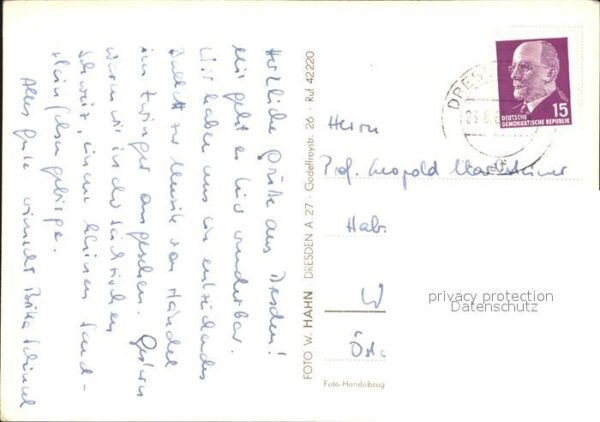 Herzliche Grüße aus Dresden!
Mir geht es hier wunderbar.
Wir haben uns ein entzückendes
Ballett zur Musik von Händel
im Zwinger angesehen. Gestern
waren wir in der sächsischen
Schweiz, einem kleinen Sand-
steinfelsengebirge.
Alles Gute wünscht
FOTO W. HAHN DRESDEN A 27 · Godeffroystr. 26 · Ruf 42220
Foto-Handabzug
DRES
15
DEUTSCHE
DEMOKRATISCHE REPUBLIK
Herrn
Prof. Leopold
Habs
W
Öst
privacy protection
Datenschutz